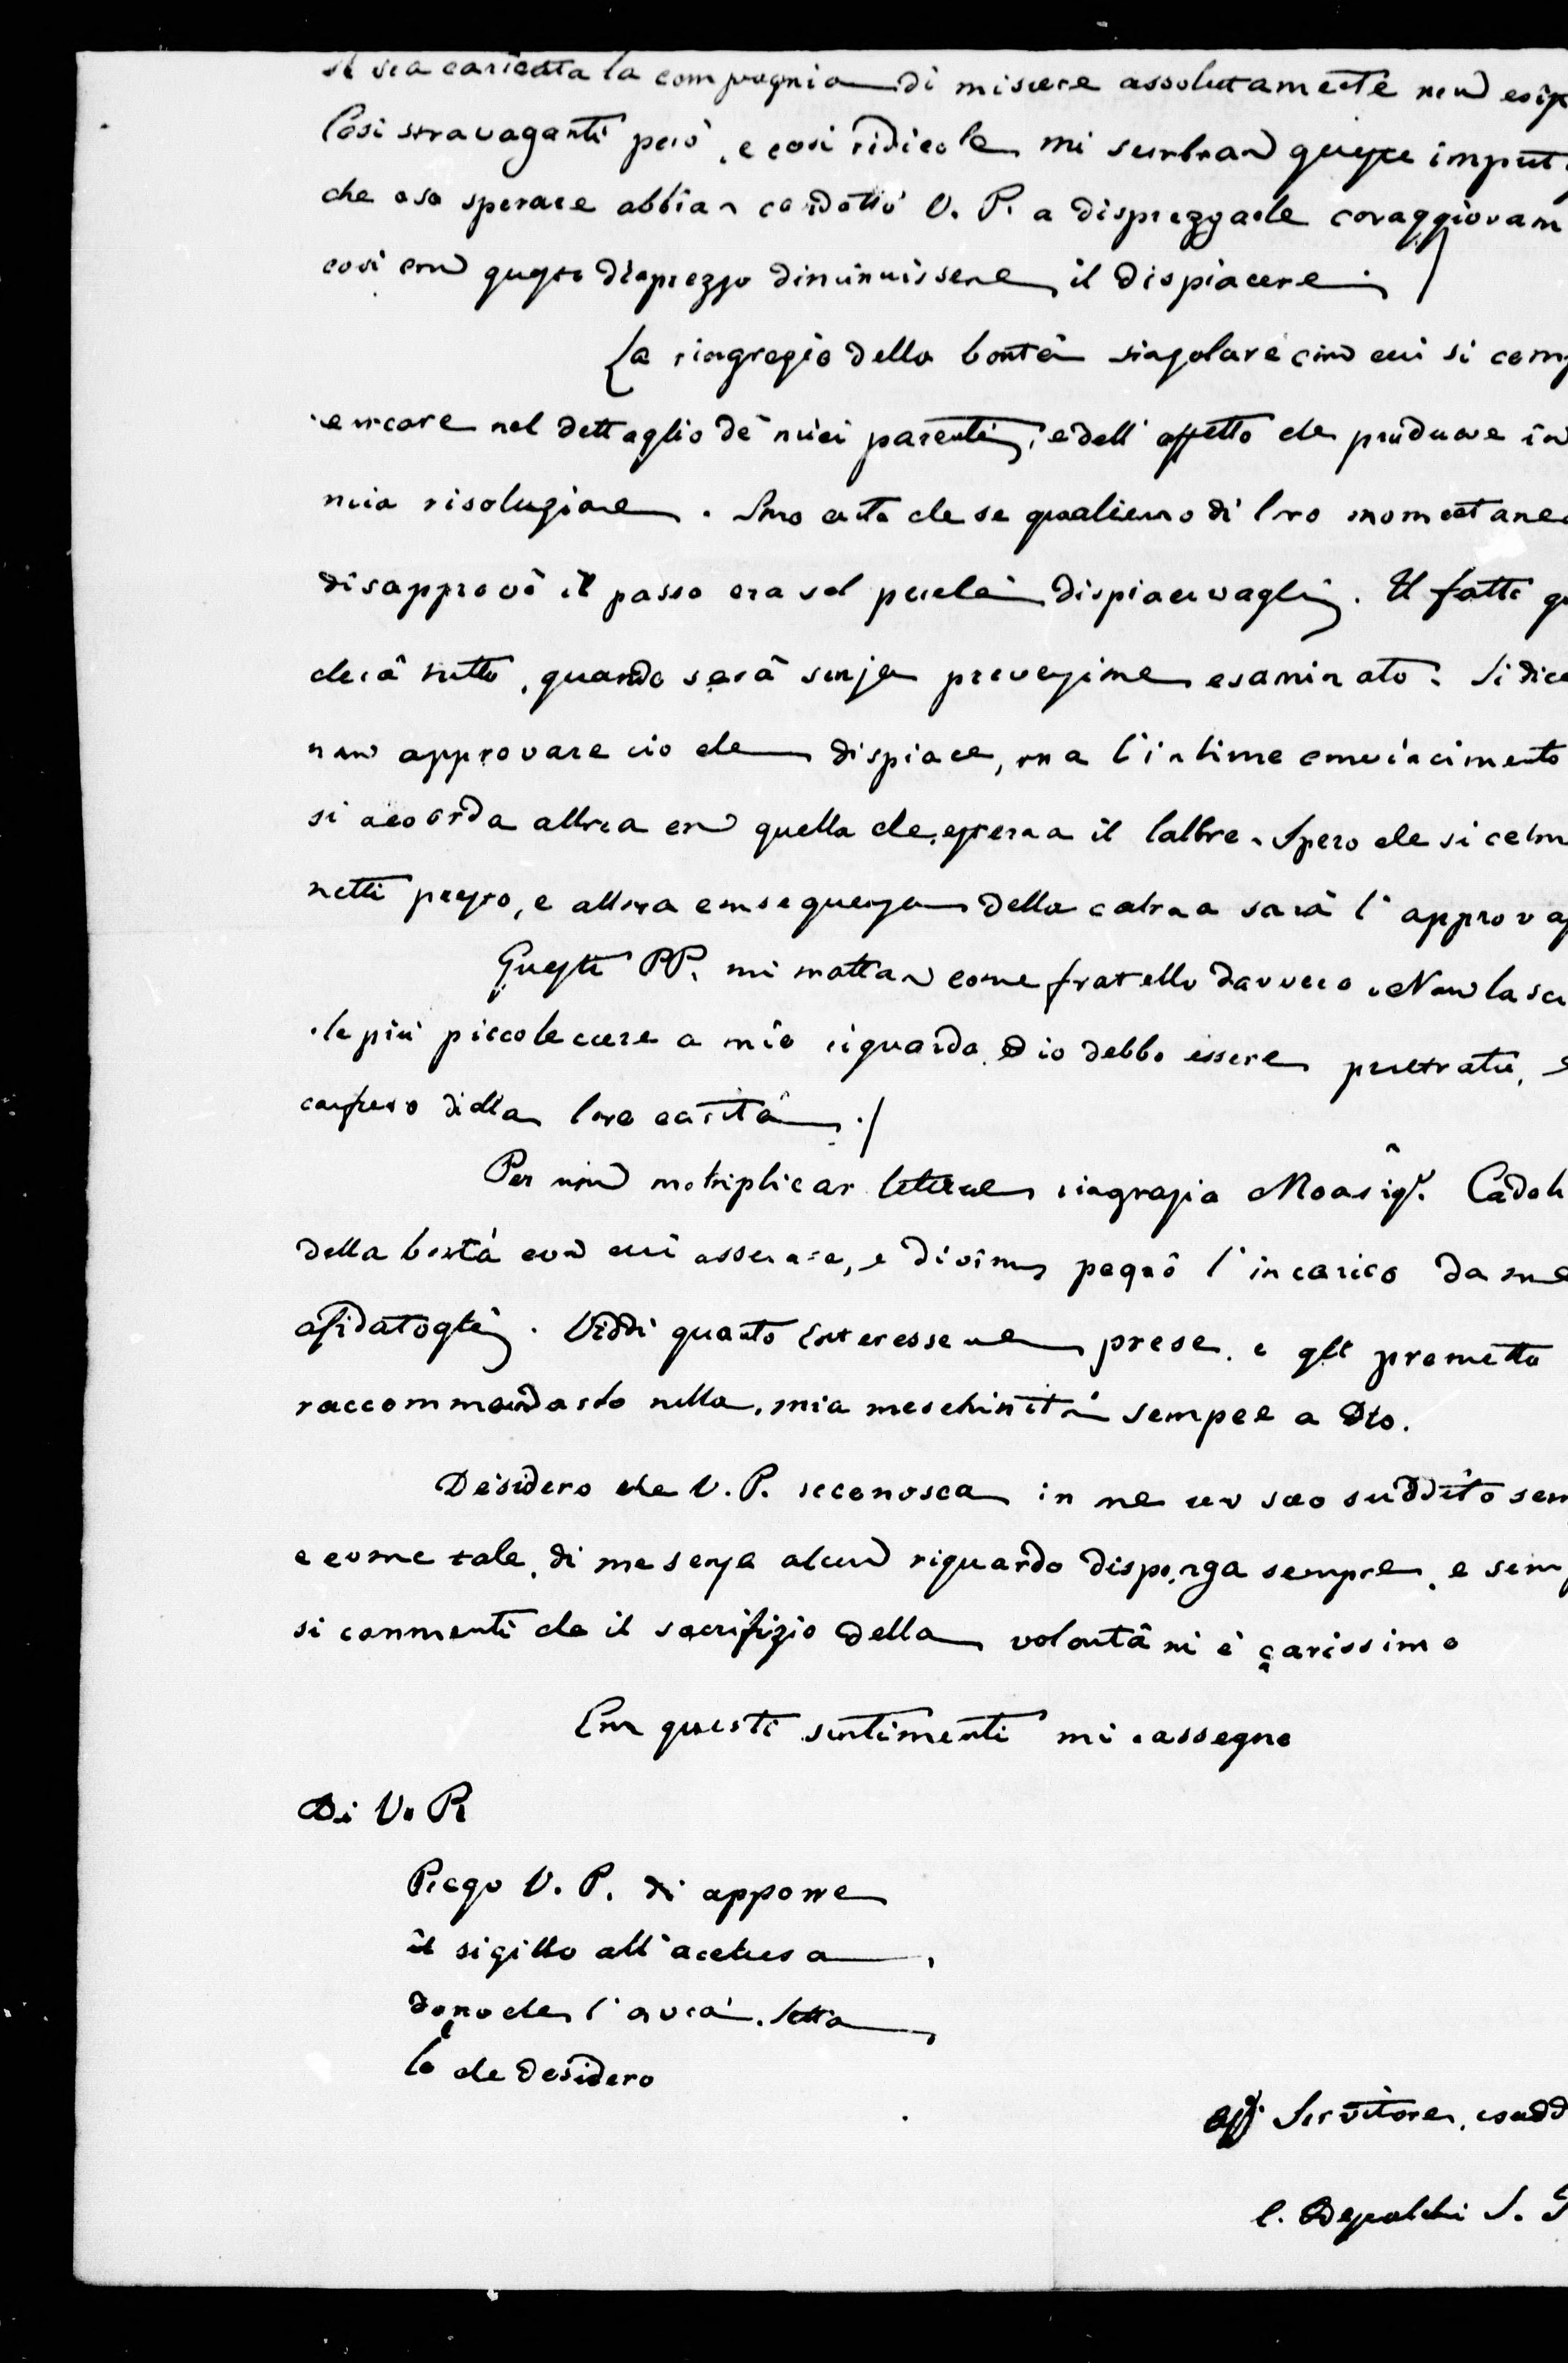 si sia caricata la compagnia di misure assolutamente non esig
Cosi stravaganti però, e cosi ridicole mi sembran queste imput
che oso sperare abbian condotto V. P. a disprezzarle coraggiosam
così con questo disprezzo diminuissene il dispiacere. /
La ringrazio della bontà singolare con cui si comp
entrare nel dettaglio de' miei parenti, e dell' effetto che produsse in
mia risoluzione. Sono certo che se qualcuno di loro momentanea
disapprovò il passo era sol perchè dispiacevagli. Il fatto gi
derà tutto, quando sarà senza prevenzione esaminato. Si dice
non approvare ciò che dispiace, ma l'intimo convincimento
si accorda allora con quello che esterna il labbro. Spero che si calm
tutti presto, e allora conseguenza della calma sarà l'approvaz
Questi PP. mi trattan come fratello davvero. Non lasci
le più piccole cure a mio riguardo. Ed io debbo essere penetrato, e
confuso della loro carità. /
Per non moltiplicar lettere ringrazia Monsigr. Cadoli
della bontà con cui assunse, e disimpegnò l'incarico da me
affidatogli. Viddi quanto interesse ne prese, e gli prometto
raccommandarlo nella mia meschinità sempre a Dio.
Desidero che V. P. riconosca in me un suo suddito sem
e come tale, di me senza alcun riguardo disponga sempre, e sem
si rammenti che il sacrifizio della volontà mi è carissimo
Con questi sentimenti mi rassegno
Di V. P.
Prego V. P. di apporre
il sigillo all'acclusa
dopo che l'avrà letta
lo che desidero
aff. Servitore, e sudd
C. Odescalchi S. J